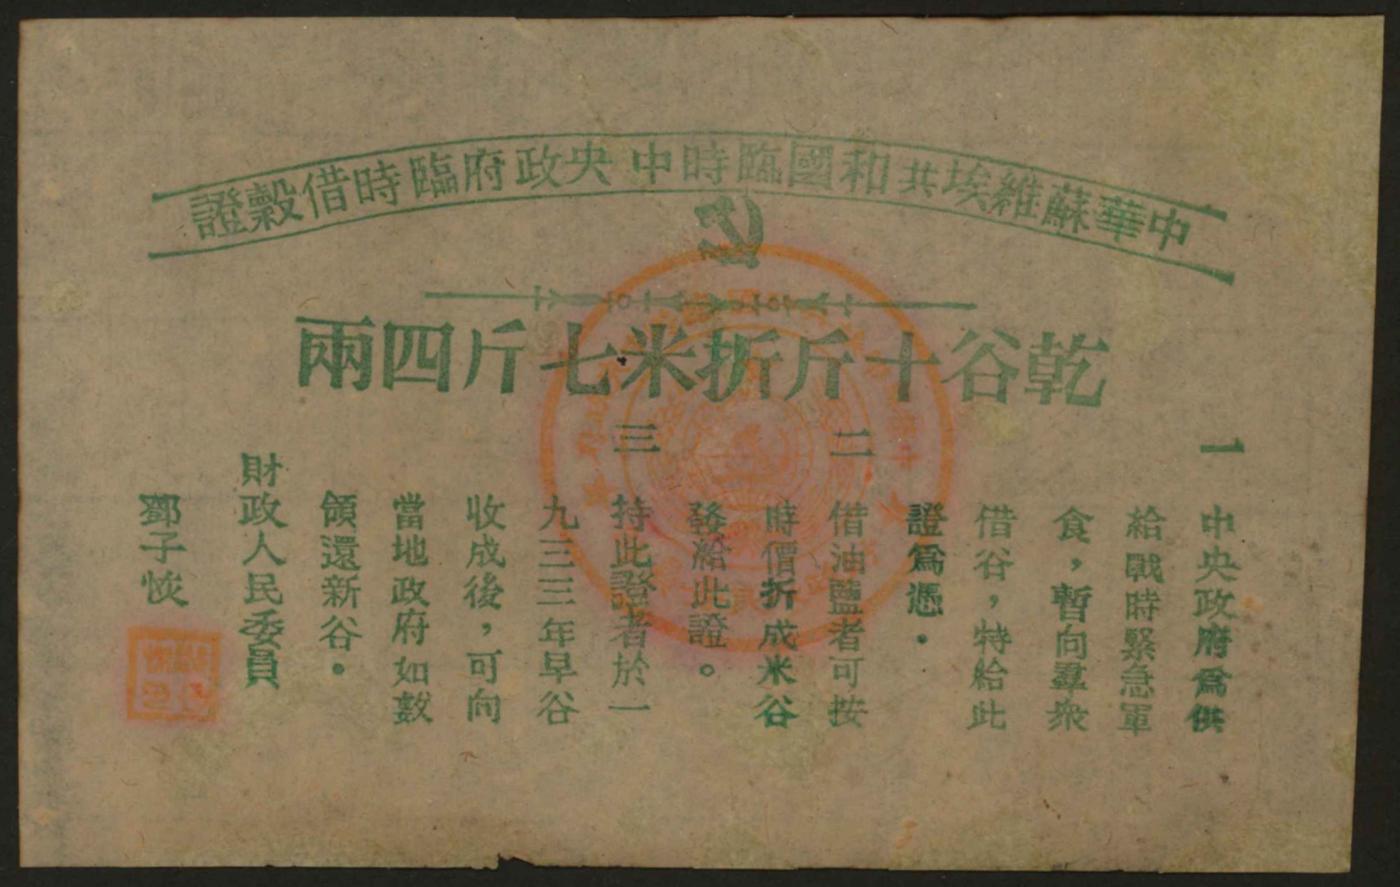 中華蘇維埃共和國臨時中央政府臨時借穀證
乾谷十斤折米七斤四兩
一
中央政府爲供
給戰時緊急軍
食，暫向羣衆
借谷，特給此
證爲憑．
二
借油鹽者可按
時價折成米谷
發給此證。
三
持此證者於一
九三三年早谷
收成後，可向
當地政府如數
領還新谷。
財政人民委員
鄧子恢